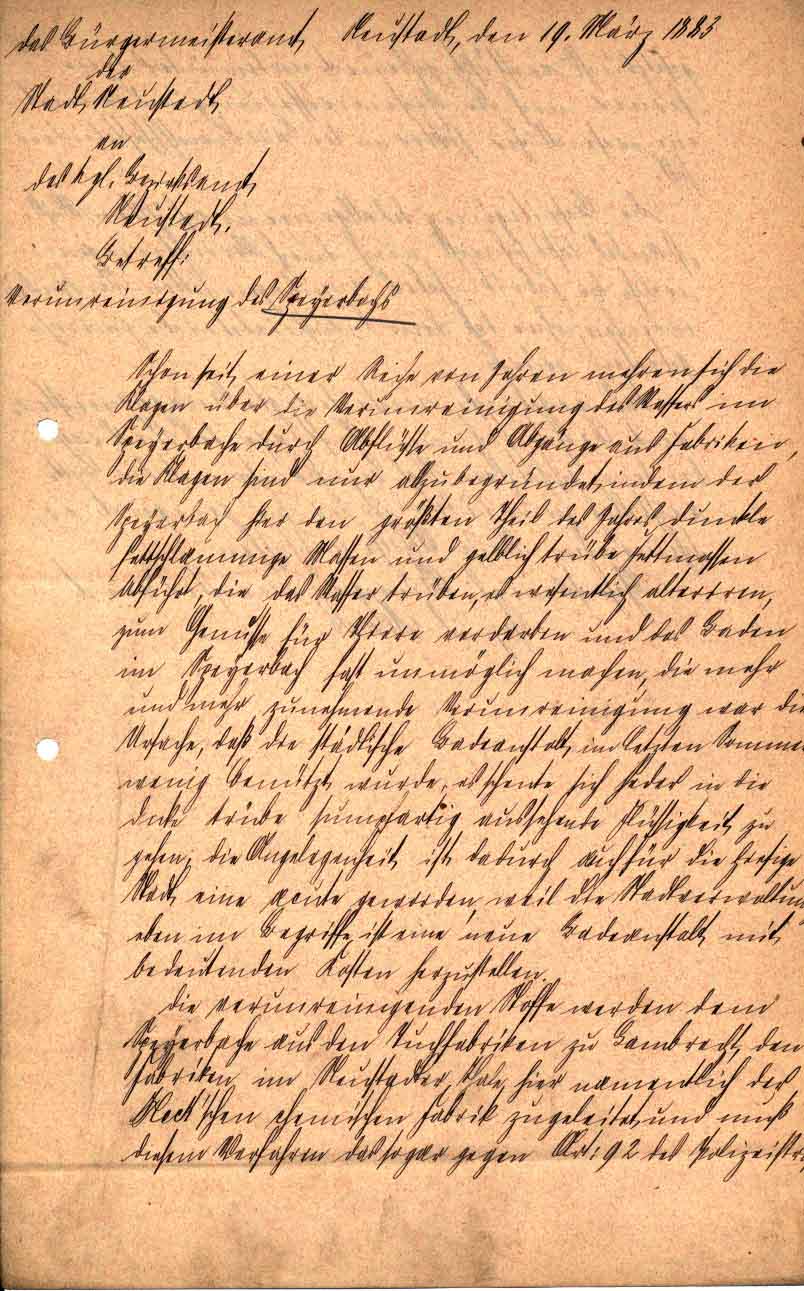 Das Bürgermeisteramt Neustadt, den 19. März 1883
der
Stadt Neustadt
an
das kgl. Bezirksamt
Neustadt.
Betreff:
Verunreinigung des Speyerbachs
Schon seit einer Reihe von Jahren mehren sich die
Klagen über die Verunreinigung des Wassers im
Speyerbache durch Abflüsse und Abgänge aus Fabriken,
die Klagen sind nur allzubegründet, indem der
Speyerbach hier den größten Theil des Jahres dunkle
fettschlammige Massen und gelblich trübe Fettmassen
abführt, die das Wasser trüben, es wesentlich alteriren,
zum Genusse für Thiere verderben und das Baden
im Speyerbach fast unmöglich machen, die mehr
und mehr zunehmende Verunreinigung war die
Ursache, daß die städtische Badeanstalt im letzten Sommer
wenig benützt wurde, es scheute sich jeder in die
dicke trübe sumpfartig aussehende Flüssigkeit zu
gehen; die Angelegenheit ist dadurch auch für die hiesige
Stadt eine acute geworden, weil die Stadtverwaltung
eben im Begriffe ist eine neue Badeanstalt mit
bedeutenden Kosten herzustellen.
Die verunreinigenden Stoffe werden dem
Speyerbache aus den Tuchfabriken zu Lambrecht, den
Fabriken im Neustadter Thale, hier namentlich der
schen chemischen Fabrik zugeleitet und muß
diesem Verfahren das sogar gegen Art: 92 des Polizeistr